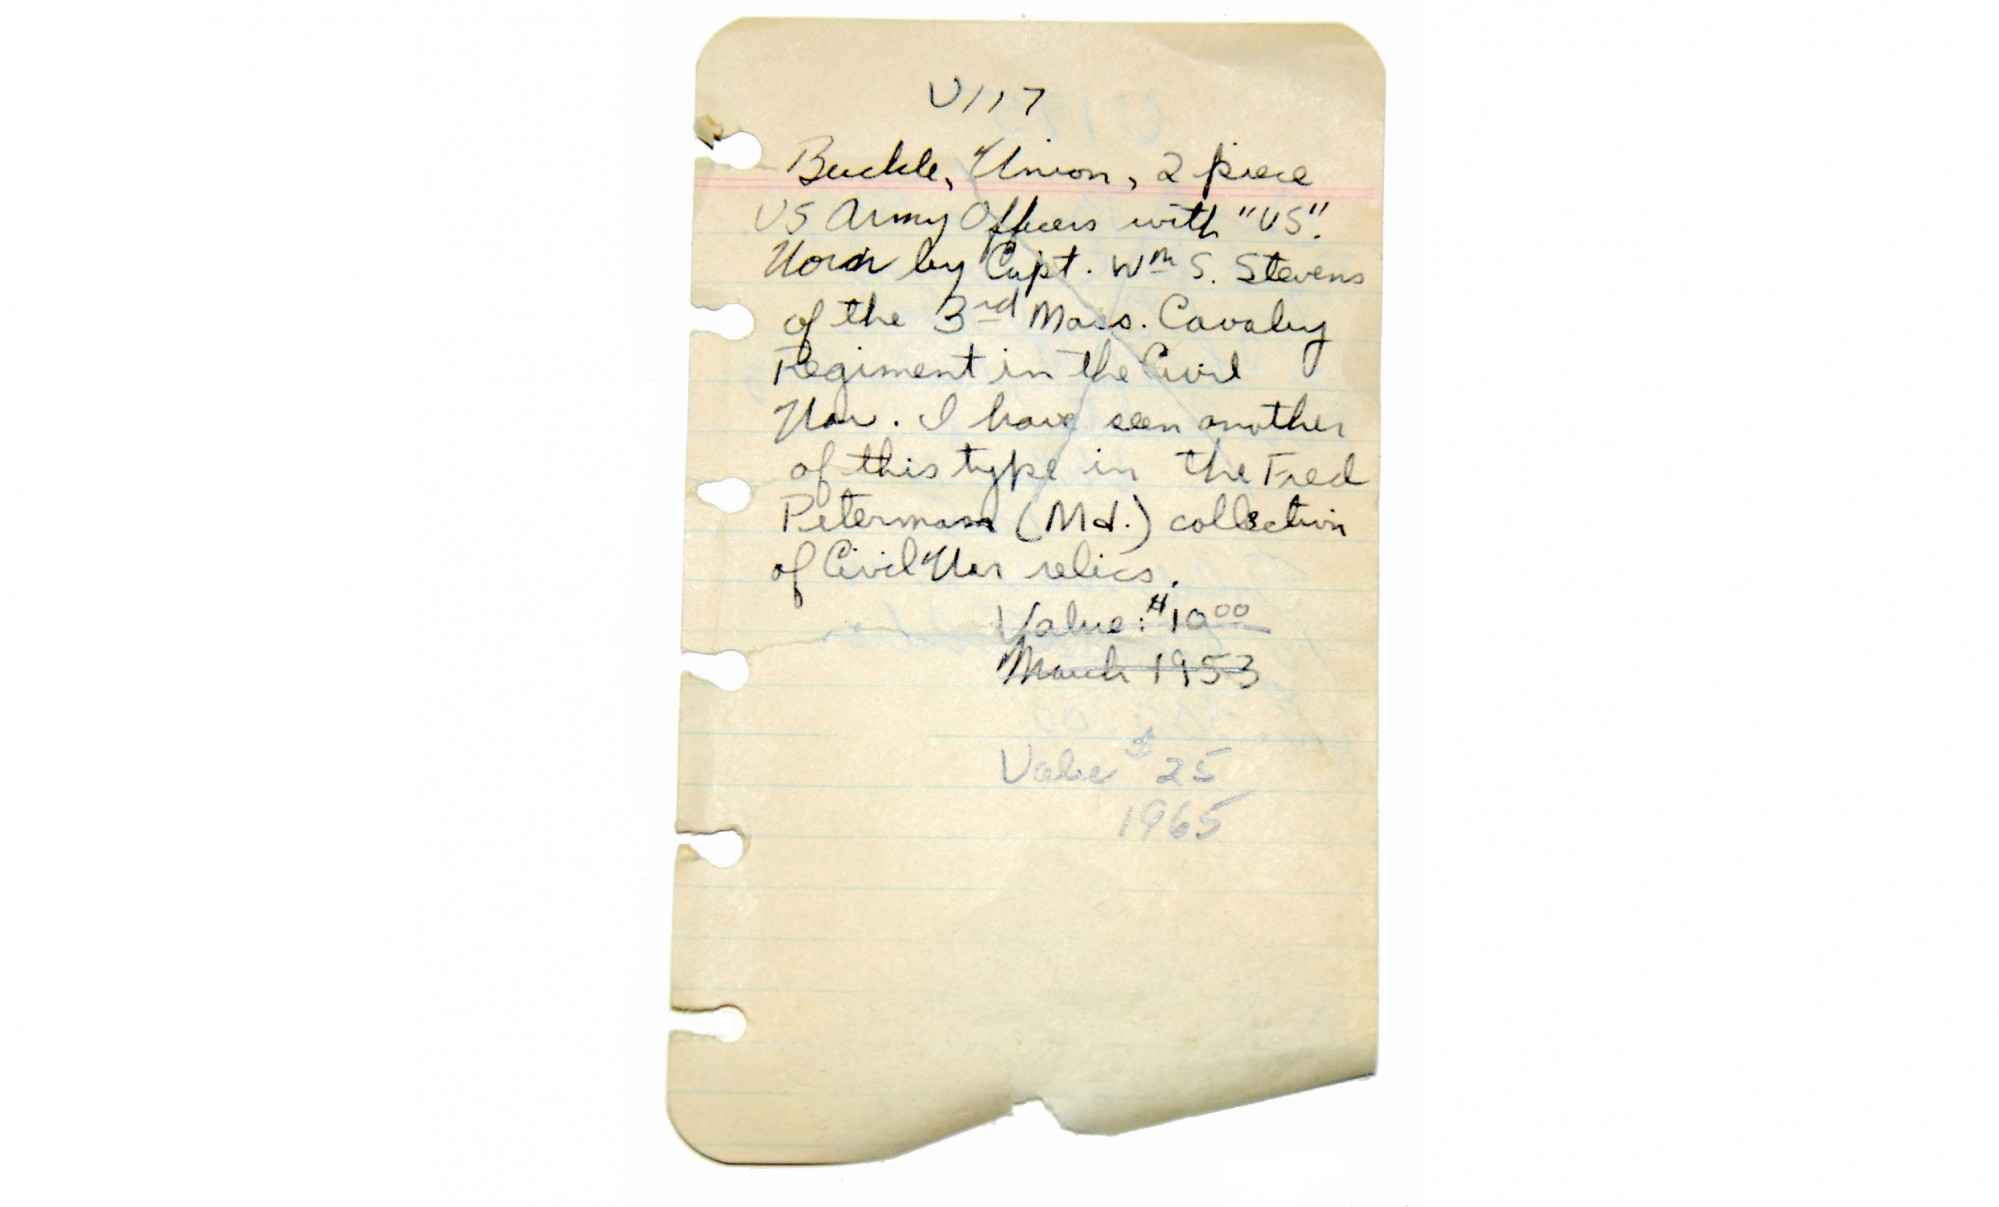 U117
Buckle, Union, 2 piece
US Army Officers with "US".
Worn by Capt. Wm S. Stevens
of the 3rd Mass. Cavalry
Regiment in the Civil
War. I have seen another
of this type in the Fred
Peterman (Md.) collection
of Civil War relics.
Value: $10.00
March 1953
Value $25
1965